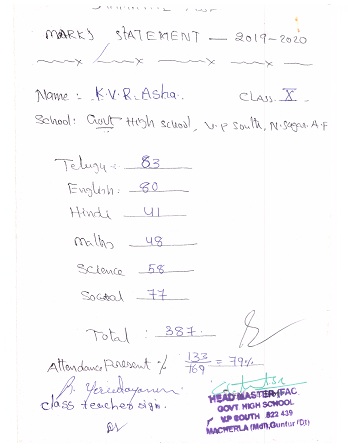 MARKS STATEMENT — 2019-2020
Name : K.V.R. Asha. CLASS X.
School: Govt High school, V.P South, N.Sagar. A.P
Telugu :- 83
English :- 80
Hindi 41
Maths 48
Science 58
Social 77
Total : 387.
Attendance Present % 133/169 = 79%
class teacher sign.
HEAD MASTER (FAC
GOVT HIGH SCHOOL
V.P SOUTH 522 439
MACHERLA (Mdt), Guntur (Dt)